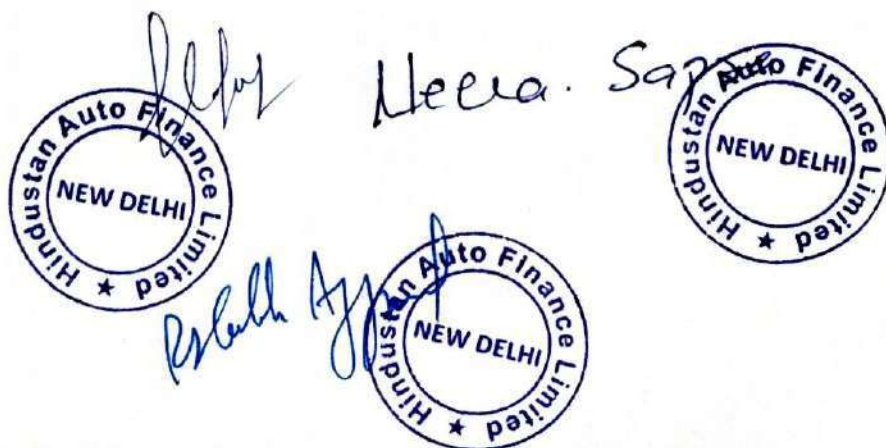 Hindustan Auto Finance Limited ★
NEW DELHI
Neera.
Hindustan Auto Finance Limited ★
NEW DELHI
Hindustan Auto Finance Limited ★
NEW DELHI